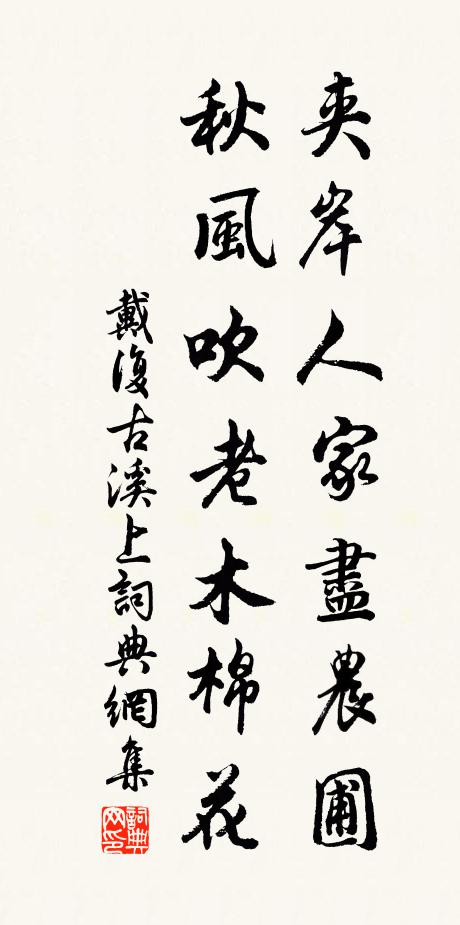 夾岸人家盡農圃
秋風吹老木棉花
戴復古溪上詞典網集
詞典网印